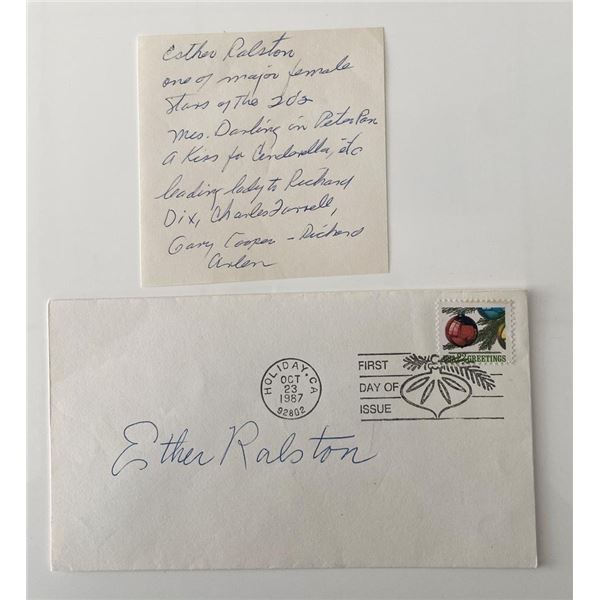 Esther Ralston
one of major female
Stars of The 20s
Mrs. Darling in Peter Pan
A Kiss for Cinderella, etc
leading lady to Richard
Dix, Charles Farrell,
Gary Cooper - Richard
Arlen
HOLIDAY, CA
OCT
23
1987
92802
FIRST
DAY OF
ISSUE
GREETINGS
Esther Ralston